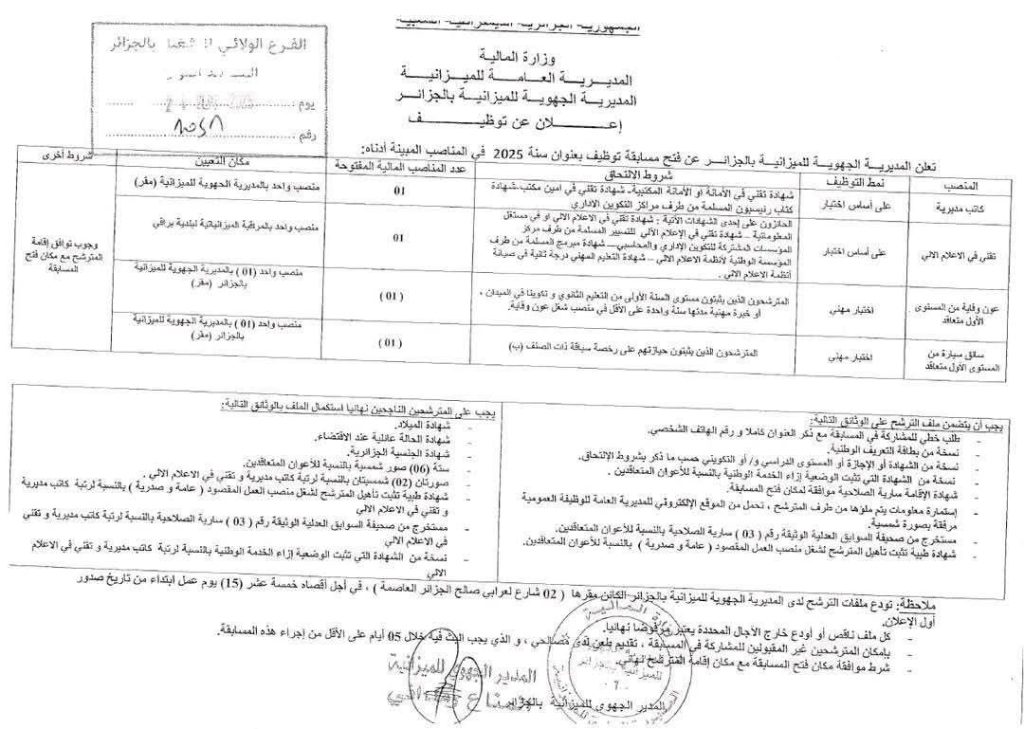 الجمهورية الجزائرية الديمقراطية الشعبية
وزارة المالية
المديرية العامة للميزانية
المديرية الجهوية للميزانية بالجزائر
إعلان عن توظيف
الفرع الولائي للتشغيل بالجزائر
يوم
رقم
تعلن المديرية الجهوية للميزانية بالجزائر عن فتح مسابقة توظيف بعنوان سنة 2025 في المناصب المبينة أدناه:
المنصب
نمط التوظيف
شروط الالتحاق
عدد المناصب المالية المفتوحة
مكان التعيين
شروط أخرى
كاتب مديرية
على أساس اختبار
شهادة تقني في الأمانة أو الأمانة المكتبية- شهادة تقني في امين مكتب-شهادة
كتاب رئيسيون المسلمة من طرف مراكز التكوين الاداري
01
منصب واحد بالمديرية الجهوية للميزانية (مقر)
تقني في الاعلام الالي
على أساس اختبار
الحائزون على إحدى الشهادات الآتية : شهادة تقني في الاعلام الالي او في مستغل
المعلوماتية – شهادة تقني في الإعلام الآلي للتسيير المسلمة من طرف مركز
المؤسسات المشتركة للتكوين الإداري والمحاسبي– شهادة مبرمج المسلمة من طرف
المؤسسة الوطنية لأنظمة الاعلام الالي – شهادة التعليم المهني درجة ثانية في صيانة
أنظمة الاعلام الالي .
01
منصب واحد بالمراقبة الميزانياتية لبلدية براقي
وجوب توافق إقامة
المترشح مع مكان فتح
المسابقة
عون وقاية من المستوى
الأول متعاقد
اختبار مهني
المترشحون الذين يثبتون مستوى السنة الأولى من التعليم الثانوي و تكوينا في الميدان ،
أو خبرة مهنية مدتها سنة واحدة على الأقل في منصب شغل عون وقاية.
( 01 )
منصب واحد (01 ) بالمديرية الجهوية للميزانية
بالجزائر (مقر)
سائق سيارة من
المستوى الأول متعاقد
اختبار مهني
المترشحون الذين يثبتون حيازتهم على رخصة سياقة ذات الصنف (ب)
( 01 )
منصب واحد (01 ) بالمديرية الجهوية للميزانية
بالجزائر (مقر)
يجب أن يتضمن ملف الترشح على الوثائق التالية:
- طلب خطي للمشاركة في المسابقة مع ذكر العنوان كاملا و رقم الهاتف الشخصي.
- نسخة من بطاقة التعريف الوطنية.
- نسخة من الشهادة أو الإجازة أو المستوى الدراسي و/ أو التكويني حسب ما ذكر بشروط الالتحاق.
- نسخة من الشهادة التي تثبت الوضعية إزاء الخدمة الوطنية بالنسبة للأعوان المتعاقدين .
- شهادة الإقامة سارية الصلاحية موافقة لمكان فتح المسابقة.
- إستمارة معلومات يتم ملؤها من طرف المترشح ، تحمل من الموقع الإلكتروني للمديرية العامة للوظيفة العمومية
مرفقة بصورة شمسية.
- مستخرج من صحيفة السوابق العدلية الوثيقة رقم ( 03 ) سارية الصلاحية بالنسبة للأعوان المتعاقدين.
- شهادة طبية تثبت تأهيل المترشح لشغل منصب العمل المقصود ( عامة و صدرية ) بالنسبة للأعوان المتعاقدين.
يجب على المترشحين الناجحين نهائيا استكمال الملف بالوثائق التالية:
- شهادة الميلاد.
- شهادة الحالة عائلية عند الاقتضاء.
- شهادة الجنسية الجزائرية.
- ستة (06) صور شمسية بالنسبة للأعوان المتعاقدين.
- صورتان (02) شمسيتان بالنسبة لرتبة كاتب مديرية و تقني في الاعلام الالي .
- شهادة طبية تثبت تأهيل المترشح لشغل منصب العمل المقصود ( عامة و صدرية ) بالنسبة لرتبة كاتب مديرية
و تقني في الاعلام الالي
- مستخرج من صحيفة السوابق العدلية الوثيقة رقم ( 03 ) سارية الصلاحية بالنسبة لرتبة كاتب مديرية و تقني
في الاعلام الالي
- نسخة من الشهادة التي تثبت الوضعية إزاء الخدمة الوطنية بالنسبة لرتبة كاتب مديرية و تقني في الاعلام
الالي
ملاحظة: تودع ملفات الترشح لدى المديرية الجهوية للميزانية بالجزائر الكائن مقرها ( 02 شارع لعرابي صالح الجزائر العاصمة ) ، في أجل أقصاه خمسة عشر (15) يوم عمل ابتداء من تاريخ صدور
أول الإعلان.
- كل ملف ناقص أو اودع خارج الآجال المحددة يعتبر مرفوضا نهائيا.
- بإمكان المترشحين غير المقبولين للمشاركة في المسابقة ، تقديم طعن لدى مصالحي ، و الذي يجب البت فيه خلال 05 أيام على الأقل من إجراء هذه المسابقة.
- شرط موافقة مكان فتح المسابقة مع مكان إقامة المترشح نهائي.
المدير الجهوي للميزانية بالجزائر
المدير الجهوي للميزانية